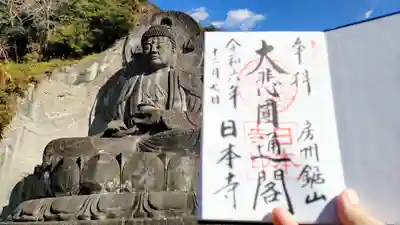 奉拝
房州鋸山
大悲圓通閣
日本寺
令和六年
十二月七日